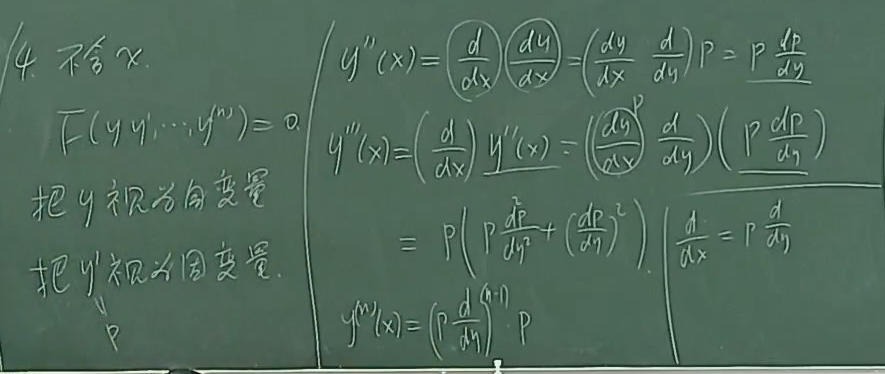 4. 不含x.
F(y y',…,y⁽ⁿ⁾)=0.
把y视为自变量
把y'视为因变量.
"
p
y''(x)=(d/dx)(dy/dx)=(dy/dx d/dy)p=p dp/dy
y'''(x)=(d/dx)y''(x)=(dy/dx d/dy)(p dp/dy)
p
=p(p d²p/dy²+(dp/dy)²)
y⁽ⁿ⁾(x)=(p d/dy)⁽ⁿ⁻¹⁾ p
d/dx=p d/dy